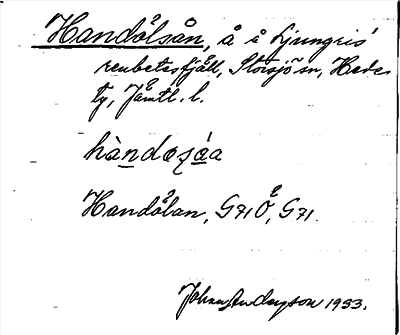 Handölsån, å i Ljungris'
renbetesfjäll, Storsjö sn, Hede
tg, Jämtl. l.
hàndɷʒáa
Handölan, G71 Ö, G71.
Johan Anderson 1933.